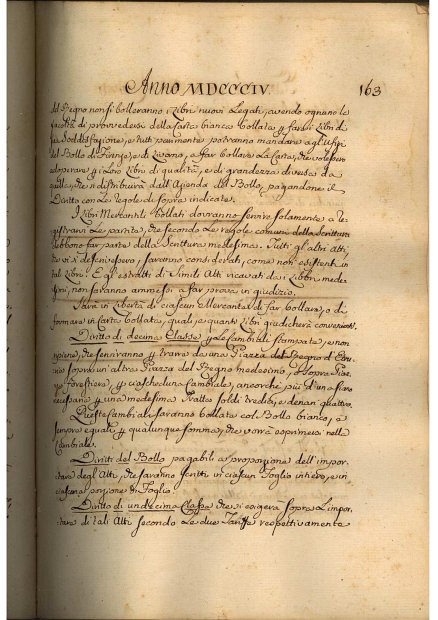 Anno MDCCCIV. 163
del Regno non si bolleranno i Libri nuovi Legati, avendo ognuno la
facoltà di provvedersi della Carta bianca bollata p farvi Libri di
sua Soddisfazione, e tutti parimente potranno mandare agl'Ufizi
del Bollo di Firenze, e di Livorno, a far bollare le Carte, che volessero
adoperare p i Loro Libri di qualità, e di grandezza diversa da
quella, che si distribuirà dall'Azienda del Bollo, pagandone il
Diritto con Le regole di sopra indicate.
I Libri Mercantili bollati dovranno servire solamente a re-
gistrarvi Le partite, che secondo Le regole comuni della Scrittura
debbono far parte della Scrittura medesima. Tutti gl'altri Atti
che vi si descrivessero, saranno considerati, come non esistenti in
tali Libri: E gl'estratti di Simili Atti ricavati da i Libri mede-
simi, non saranno ammessi a far prova in giudizio.
Sarà in Libertà di ciascun Mercante di far bollare, o di
formare in Carta bollata, quali, e quanti Libri giudicherà convenienti.
Diritto di decima Classe p Le Cambiali stampate, e non
ripiene, che serviranno p trarre da una Piazza del Regno d'Etru-
ria sopra un altra Piazza del Regno medesimo, o sopra Piazze
forestiere, p ciascheduna Cambiale, ancorchè più d'una fosse
p una medesima Tratta soldi tredici, e denari quattro.
Queste Cambiali saranno bollate col Bollo bianco, e
sempre eguali p qualunque somma, che vorrà esprimersi nelle
Cambiali.
Diritti del Bollo pagabili a proporzione dell'impor-
tare degl'Atti, che saranno scritti in ciascun Foglio intiero, e in
ciascuna porzione di Foglio.
Diritto di undecima Classe che si esigerà sopra L'impor-
tare di tali Atti secondo Le due Tariffe respettivamente